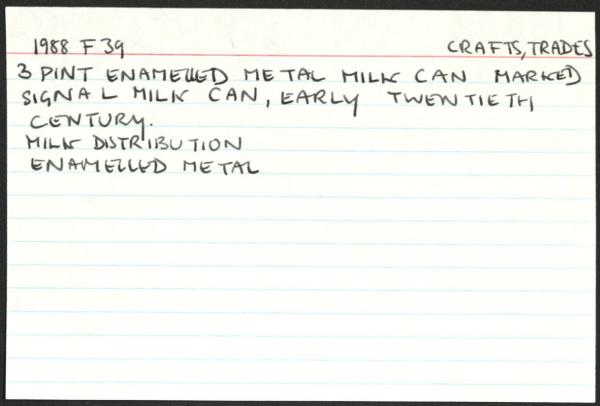 1988 F 39 CRAFTS, TRADES
3 PINT ENAMELLED METAL MILK CAN MARKED
SIGNAL MILK CAN, EARLY TWENTIETH
CENTURY.
MILK DISTRIBUTION
ENAMELLED METAL